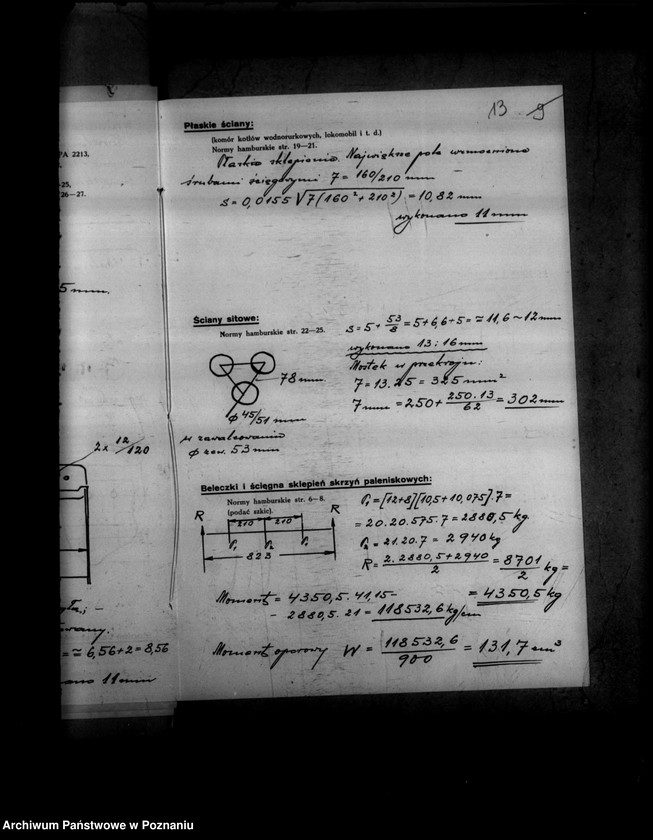 PA 2213,
-25,
26-27.
5 mm.
2x 12/120
= ≈ 6,56+2 = 8,56
11 mm
13 9
Płaskie ściany:
(komór kotłów wodnorurkowych, lokomobil i t. d.)
Normy hamburskie str. 19—21.
Płaskie sklepienia. Największe pole wzmocnione
śrubami ścięgowymi 7 = 160/210 mm
s = 0,0155 √7(160² + 210²) = 10,82 mm
wykonano 11 mm
Ściany sitowe:
Normy hamburskie str. 22—25.
s = 5 + 53/8 = 5 + 6,6 + 5 = ≈ 11,6 ~ 12 mm
wykonano 13 i 16 mm
Mostek w przekroju:
7 = 13.25 = 325 mm²
7 mm = 250 + 250.13/62 = 302 mm
78 mm
φ 45/51 mm
w zawalcowaniu
φ zew. 53 mm
Beleczki i ścięgna sklepień skrzyń paleniskowych:
Normy hamburskie str. 6—8.
(podać szkic).
R 210 210 R
P₁ P₂ P₁
823
P₁ = [12+8][10,5 + 10,075].7 =
= 20.20.575.7 = 2880,5 kg.
P₂ = 21.20.7 = 2940 kg
R = 2.2880,5 + 2940/2 = 8701/2 kg =
= 4350,5 kg
Moment = 4350,5.41,15 -
- 2880,5.21 = 118532,6 kg/cm
Moment oporowy W = 118532,6/900 = 131,7 cm³
Archiwum Państwowe w Poznaniu